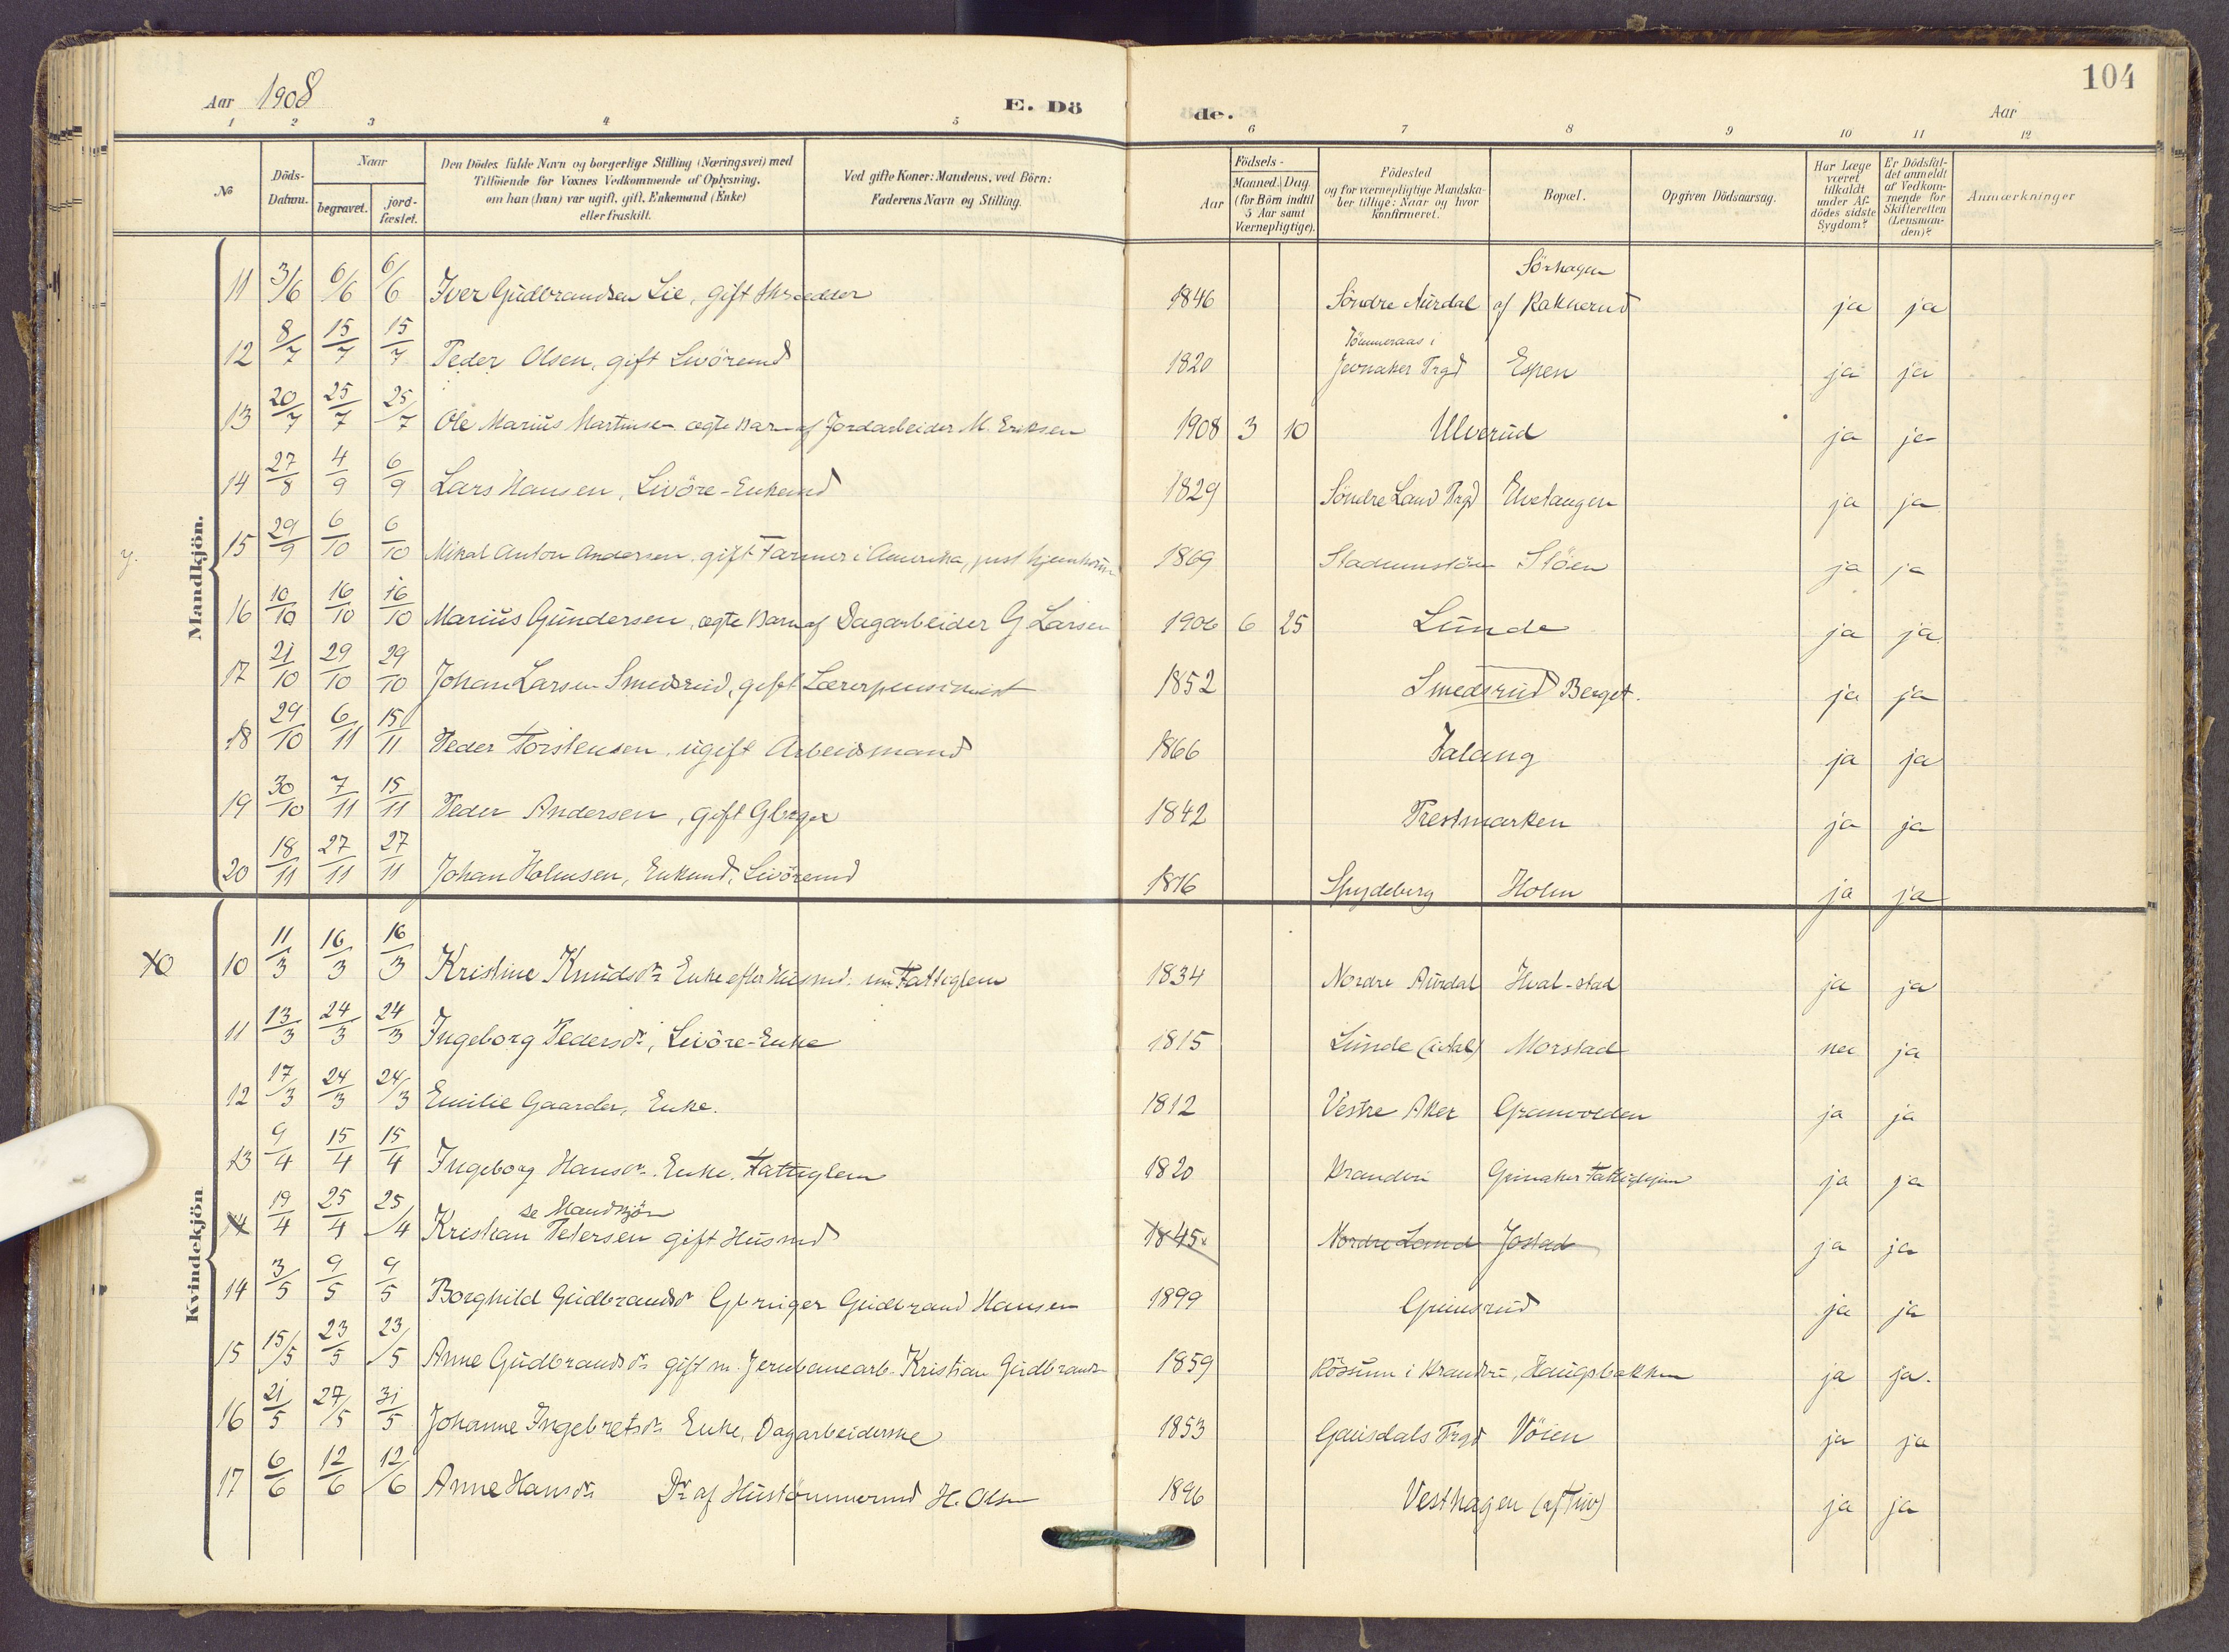 104
Aar 1908
E. Dö
de.
Aar
1 2 3 4 5 6 7 8 9 10 11 12
№
Döds-Datum.
Naar
begravet.
jord-fæstet.
Den Dödes fulde Navn og borgerlige Stilling (Næringsvei) med
Tilföiende for Voxnes Vedkommende af Oplysning,
om han (hun) var ugift, gift, Enkemand (Enke)
eller fraskilt.
Ved gifte Koner: Mandens, ved Börn:
Faderens Navn og Stilling.
Aar
Födsels-
Maaned. Dag
(for Börn indtil
5 Aar samt
Værnepligtige).
Födested
og for værnepligtige Mandska-
ber tillige: Naar og hvor
konfirmeret.
Bopæl.
Opgiven Dödsaarsag.
Har Læge
været
tilkaldt
under Af-
dödes sidste
Sygdom?
Er Dödsfal-
det anmeldt
af Vedkom-
mende for
Skifteretten
(Lensman-
den)?
Anmærkninger
Mandkjön.
Sörhagen
11 3/6 6/6 6/6 Iver Gudbrandsen Lie, gift Skrædder 1846 Söndre Aurdal af Raknerud ja ja
Tömmeraas i
12 8/7 15/7 15/7 Peder Olsen, gift Livöremd 1820 Jevnaker Prgd Espen ja ja
13 20/7 25/7 25/7 Ole Marius Martinsen ægte Barn af Jordarbeider M. Eriksen 1908 3 10 Ulverud ja ja
14 27/8 4/9 6/9 Lars Hansen, Livöre-Enkemd 1829 Söndre Land Prgd Elvetangen ja ja
y. 15 29/9 6/10 6/10 Mikal Anton Andersen, gift Farmer i Amerika, just 1869 Stöen ja ja
16 10/10 16/10 16/10 Marius Gundersen, ægte Barn af Dagarbeider G Larsen 1906 6 25 Lunde ja ja
17 21/10 29/10 29/10 Johan Larsen Smedsrud, gift Lærerpensionist 1852 Smedsrud Berget. ja ja
18 29/10 6/11 15/11 Peder Torstensen, ugift Arbeidsmand 1866 Falang ja ja
19 30/10 7/11 15/11 Peder Andersen, gift Gbrger 1842 Prestmarken ja ja
20 18/11 27/11 27/11 Johan Holmsen, Enkemd, Livöremd 1816 Spydeberg Holm ja ja
Kvindekjön
10 11/3 16/3 16/3 Kristine Knudsdr Enke efter Husmd. Fattiglem 1834 Nordre Aurdal Hval-stad ja ja
11 13/3 24/3 24/3 Ingeborg Pedersdr, Livöre-Enke 1815 Lunde Morstad nei ja
12 17/3 24/3 24/3 Emilie Gaarder, Enke. 1812 Vestre Aker Granvolden ja ja
13 9/4 15/4 15/4 Ingeborg Hansdr. Enke. Fattiglem 1820 Brandbu Grinaker Fattighjem ja ja
se Mandkjön
14 19/4 25/4 25/4 Kristian Petersen gift Husmd 1845 Nordre Land Jostad ja ja
14 3/5 9/5 9/5 Borghild Gudbrandsdr Gbruger Gudbrand Hansen 1899 Grimsrud ja ja
15 15/5 23/5 23/5 Anne Gudbrandsdr gift m. Jernbanearb. Kristian Gudbrands 1859 Rösum i Brandbu, Haugsbakken ja ja.
16 21/5 27/5 31/5 Johanne Ingebretsdr Enke, Dagarbeiderske 1853 Gausdals Prgd Vöien ja ja
17 6/6 12/6 12/6 Anne Hansdr Dr af Hustömmermd H. Olsen 1896 Vesthagen ja ja